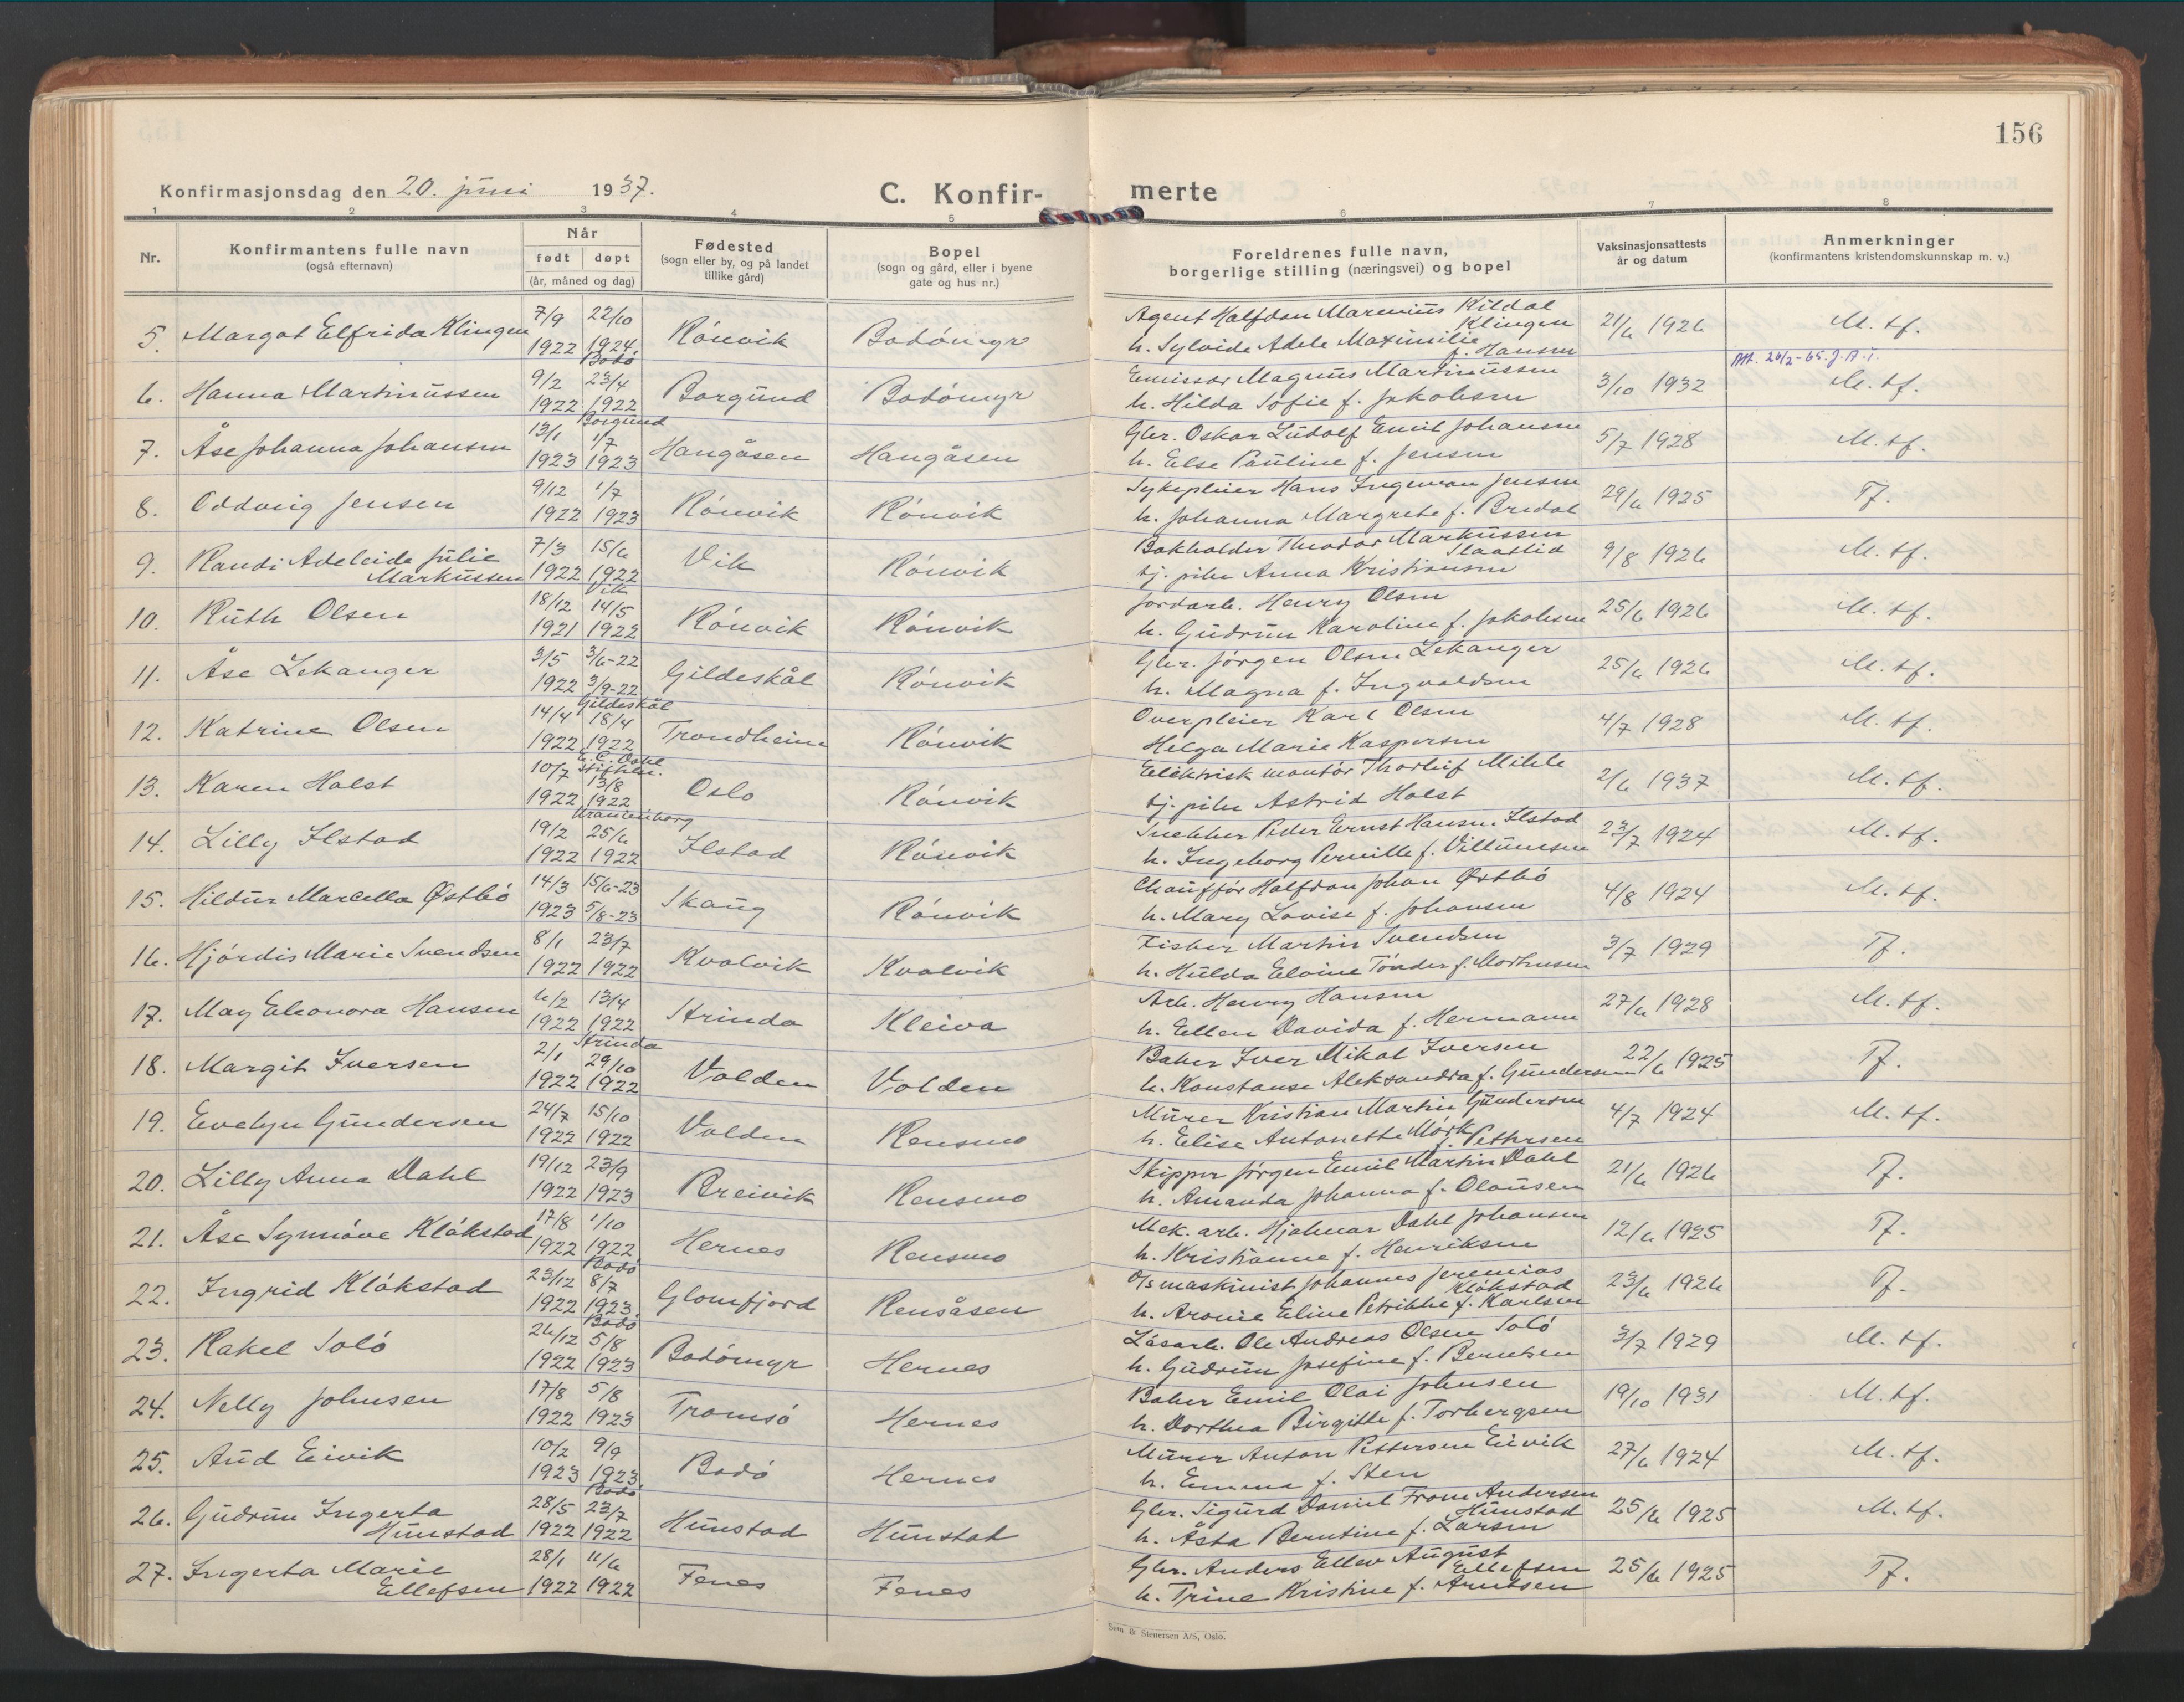 156
Konfirmasjonsdag den 20. juni 1937.
C. Konfir-
merte
1 2 3 4 5 6 7 8
Nr.
Konfirmantens fulle navn
(også efternavn)
Når
født døpt
(år, måned og dag)
Fødested
(sogn eller by, og på landet
tillike gård)
Bopel
(sogn og gård, eller i byene
gate og hus nr.)
Foreldrenes fulle navn,
borgerlige stilling (næringsvei) og bopel
Vaksinasjonsattests
år og datum
Anmerkninger
(konfirmantens kristendomskunnskap m. v.)
5. Margot Elfrida Klingen 7/9 1922 22/10 1924 Bodó Rónvik Bodómyr
Agent Halfdan Marenius Kildal Klingen
h. Sylvide Adele Maximilie f. Hansen 21/6 1926 M. tf.
Att. 20/2-65. J.A.I.
6. Hanna Martinussen 9/2 1922 23/4 1922 Borgund Borgund Bodómyr
Emissær Magnus Martinussen
h. Hilda Sofie f. Jakobsen 3/10 1932 M. tf.
7. Åse Johanna Johansen 13/1 1923 1/7 1923 Hangåsen Hangåsen
Gbr. Oskar Ludolf Emil Johansen
h. Else Pauline f. Jensen 5/7 1928 M. tf.
8. Oddveig Jensen 9/12 1922 1/7 1923 Rónvik Rónvik
Sykepleier Hans Ingeman Jensen
h. Johanna Margrete f. Bredal 29/6 1925 Tf.
9. Randi Adeleide Julie Markussen 7/3 1922 15/6 1922 Vik Vik Rónvik
Bokholder Theodor Markussen Slaatlid
tj. pike Anna Kristiansen 9/8 1926 M. tf.
10. Ruth Olsen 18/12 1921 14/5 1922 Rónvik Rónvik
Jordarb. Henry Olsen
h. Gudrun Karoline f. Jakobsen 25/6 1926 M. tf.
11. Åse Lekanger 3/5 1922 3/6-22 3/9-22 Gildeskål Gildeskål Rónvik
Gbr. Jórgen Olsen Lekanger
h. Magna f. Ingvaldsen 25/6 1926 M. tf.
12. Katrine Olsen 14/4 1922 18/4 1922 E. C. Dahl Stiftelse. Trondheim Rónvik
Overpleier Karl Olsen
Helga Marie Kaspersen 4/7 1928 M. tf.
13. Karen Holst 10/7 1922 13/8 1922 Uranienborg Oslo Rónvik
Elektrisk montór Thorleif Mikle
tj. pike Astrid Holst 2/6 1937 M. tf.
14. Lilly Ilstad 19/2 1922 25/6 1922 Ilstad Rónvik
Snekker Peder Ernst Hansen Ilstad
h. Ingeborg Pernille f. Villumsen 23/7 1924 M. tf.
15. Hildur Marcella Østbó 14/3 1923 15/6-23 5/8-23 Skaug Rónvik
Chauffór Halfdan Johan Østbó
h. Mary Lovise f. Johansen 4/8 1924 M. tf.
16. Hjórdis Marie Svendsen 8/1 1922 23/7 1922 Kvalvik Kvalvik
Fisker Martin Svendsen
h. Hulda Elvine Tónder f. Morthusen 3/7 1929 Tf.
17. May Eleonora Hansen 6/2 1922 13/4 1922 Strinda Strinda Kleiva
Arb. Henry Hansen
h. Ellen Davida f. Hermann 27/6 1928 M. tf.
18. Margit Iversen 2/1 1922 29/10 1922 Volden Volden
Baker Iver Mikal Iversen
h. Konstanse Aleksandra f. Gundersen 22/6 1925 Tf.
19. Evelyn Gundersen 24/7 1922 15/10 1922 Volden Rensmo
Murer Kristian Martin Gundersen
h. Elise Antonette Mórk f. Pettersen 4/7 1924 M. tf.
20. Lilly Anna Dahl 19/12 1922 23/9 1923 Breivik Rensmo
Skipper Jórgen Emil Martin Dahl
h. Amanda Johanna f. Olausen 21/6 1926 Tf.
21. Åse Synnóve Klókstad 17/8 1922 1/10 1922 Bodó Hernes Rensmo
Mek. arb. Hjalmar Dahl Johansen
h. Kristianne f. Henriksen 12/6 1925 Tf.
22. Ingrid Klókstad 23/12 1922 8/7 1923 Bodó Glomfjord Rensåsen
O/s maskinist Johannes Jeremias Klókstad
h. Aronie Eline Petrikke f. Karlsen 23/6 1926 Tf.
23. Rakel Soló 26/12 1922 5/8 1923 Bodómyr Hernes
Lósarb. Ole Andreas Olsen Soló
h. Gudrun Josefine f. Berntsen 3/7 1929 M. tf.
24. Nelly Johnsen 17/8 1922 5/8 1923 Tromsó Hernes
Baker Emil Olai Johnsen
h. Dorthea Birgitte f. Torbergsen 19/10 1931 M. tf.
25. Aud Eivik 10/2 1923 9/9 1923 Bodó Bodó Hernes
Murer Anton Pettersen Eivik
h. Emma f. Sten 27/6 1924 M. tf.
26. Gudrun Ingerta Hunstad 28/5 1922 23/7 1922 Hunstad Hunstad
Gbr. Sigurd Daniel From Andersen Hunstad
h. Åsta Berntine f. Larsen 25/6 1925 M. tf.
27. Ingerta Marie Ellefsen 28/1 1922 11/6 1922 Fenes Fenes
Gbr. Anders Ellev August Ellefsen
h. Trine Kristine f. Arntsen 25/6 1925 Tf.
Sem & Stenersen A/S, Oslo.